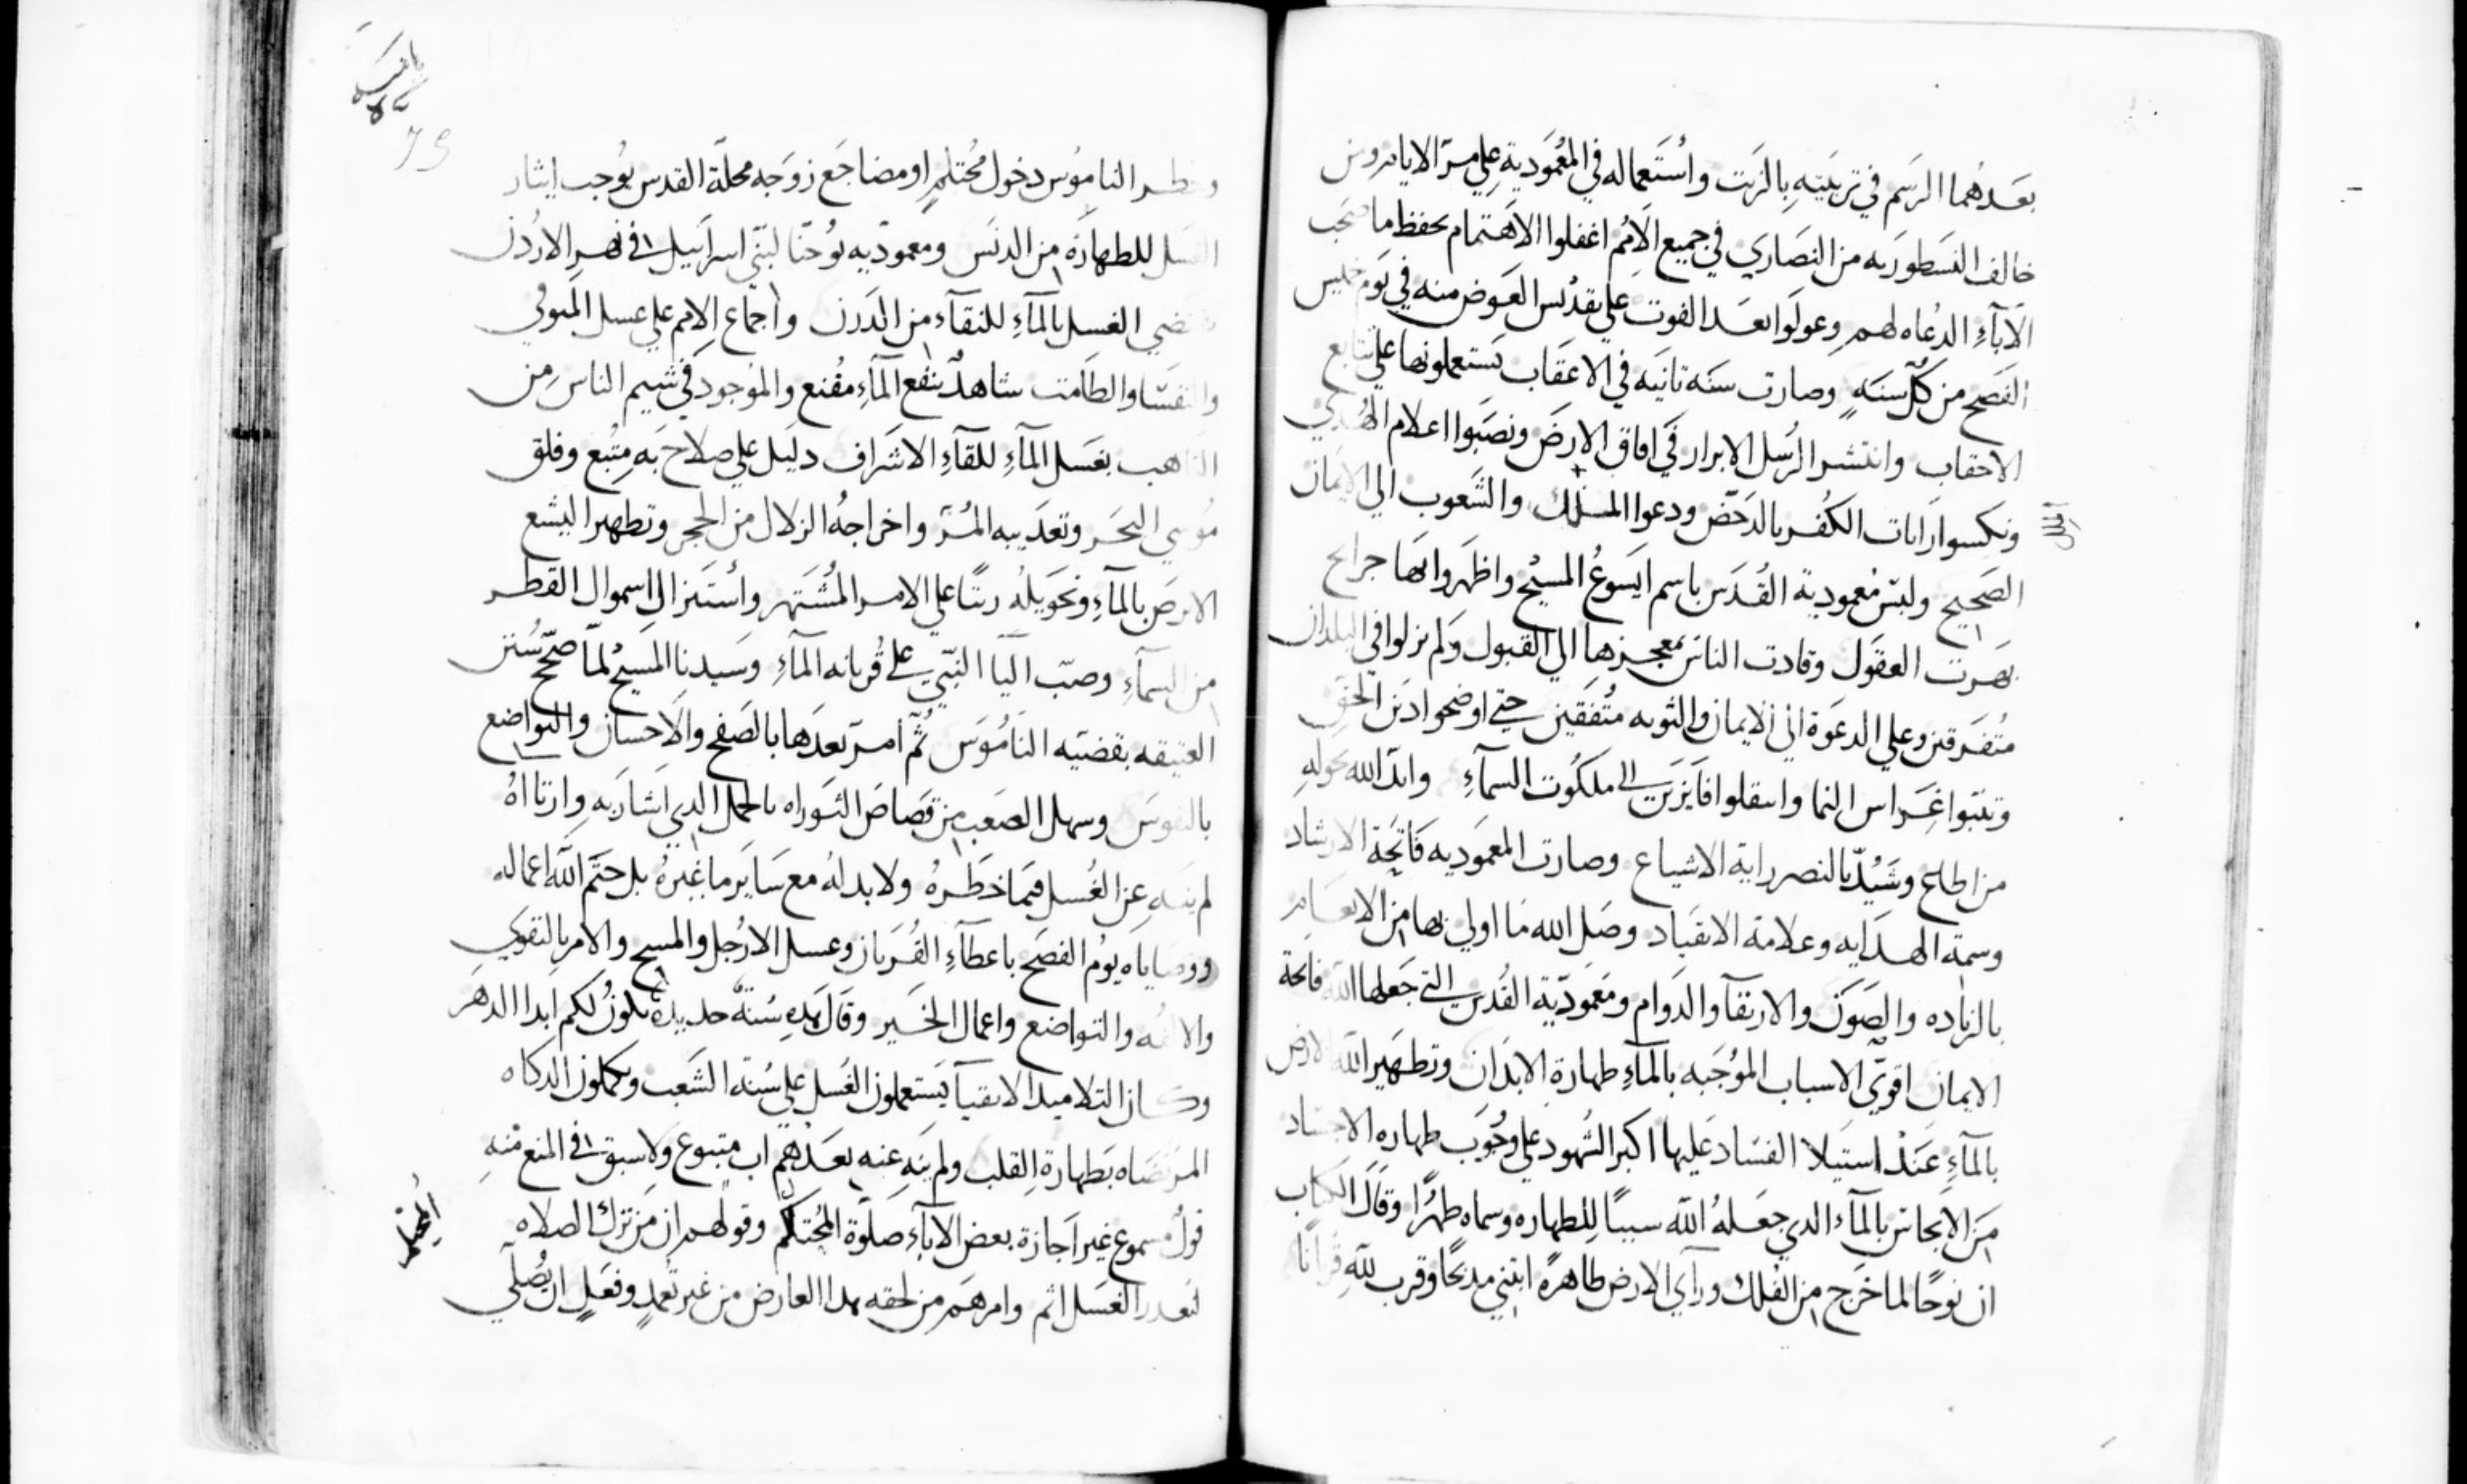 بعدهما الرسم في تربيته بالزيت واستعماله في المعمودية علي مر الايام ومن
خالف النسطوريه من النصاري في جميع الامم اغفلوا الاهتمام بحفظ ما صحب
الاباء الدعاه لهم وعولوا بعد الفوت علي تقديس العوض منه في يوم خميس
الفصح من كل سنه وصارت سنه ثانيه في الاعقاب يستعملونها علي تتابع
الاحقاب وانتشر الرسل الابرار في افاق الارض ونصبوا اعلام الهدي
ونكسوا رايات الكفر بالدحض ودعوا الملل والشعوب الي الايمان
الصحيح ولبس معمودية القدس باسم ايسوع المسيح واظهروا بها جرايح
بهرت العقول وقادت الناس بمعجزها الي القبول ولم يزلوا في البلدان
متفرقين وعلي الدعوة الي الايمان والتوبه متفقين حتي اوضحوا دين الحق
وثبتوا غراس النما وانتقلوا فايزين الي ملكوت السماء وايد الله بحوله
من اطاع وشيد بالنصر راية الاشياع وصارت المعموديه فاتحة الارشاد
وسمة الهدايه وعلامة الانقياد وصل الله ما اولي بها من الانعام
بالزياده والصون والارتقا والدوام ومعمودية القدس التي جعلها الله فاتحة
الايمان اقوي الاسباب الموجبه بالماء طهارة الابدان وتطهير الله الارض
بالماء عند استيلا الفساد عليها اكبر الشهود علي وجوب طهاره الاجساد
من الانجاس بالماء الذي جعله الله سببا للطهاره وسماه طهرا وقال الكتاب
ان نوحا لما خرج من الفلك وراي الارض طاهرة ابتني مذبحا وقرب لله قربانا
وحظر الناموس دخول محتلم او مضاجع زوجه محلة القدس يوجب ايثار
الغسل للطهارة من الدنس ومعموديه يوحنا لبني اسراييل في نهر الاردن
تقتضي الغسل بالماء للنقاء من الدرن واجماع الامم علي غسل المتوفي
والنفسا والطامث شاهد بنفع الماء مقنع والموجود في شيم الناس من
التاهب بغسل الماء للقاء الاشراف دليل علي صلاح به متبع وفلق
موسي البحر وتعذيبه المر واخراجه الزلال من الحجر وتطهير اليشع
الابرص بالماء وتحويله زيتا علي الامر المشتهر واستنزال اسموال القطر
من السماء وصب اليا النبي علي قربانه الماء وسيدنا المسيح لما صحح سنن
العتيقه بقضيه الناموس ثم امر بعدها بالصفح والاحسان والتواضع
بالنفوس وسهل الصعب من قصاص التوراه بالحمل الذي اشار به وارتااه
لم ينه عن الغسل فيما حظره ولا بدله مع ساير ما غيره بل ختم الله اعماله
ووصاياه يوم الفصح باعطاء القربان وغسل الارجل والمسح والامر بالتقوي
والالفه والتواضع واعمال الخير وقال هذه سنة جديدة تكون لكم ابدا الدهر
وكان التلاميذ الاتقيا يستعملون الغسل علي سنة الشعب ويكملون الذكاه
المرتضاه بطهارة القلب ولم ينه عنه بعدهم اب متبوع ولا سبق في المنع منه
قول مسموع غير اجازة بعض الاباء صلوة المحتلم وقولهم ان من ترك الصلاه
لتعذر الغسل اثم وامرهم من لحقه هذا العارض من غير تعمد وفعل ان يصلي
المحتلم